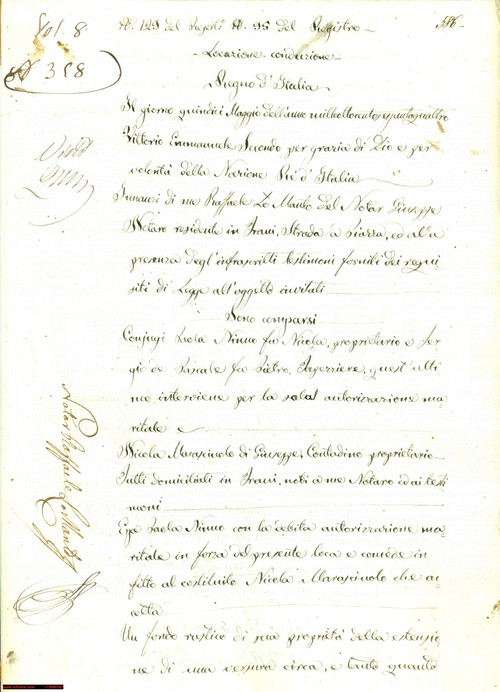 N. 129 del Repert. N. 95 del Registro
586
Vol. 8.
N 318
Locazione-conduzione
Regno d'Italia
Il giorno quindici Maggio dell'anno milleottocentosessantaquattro
Vittorio Emmanuele Secondo per grazia di Dio e per
volontà della Nazione Re d'Italia
Innanzi di me Raffaele Lo Manto del Notar Giuseppe
Notaro residente in Trani, Strada la Piazza, ed alla
presenza degl'infrascritti testimoni forniti dei requi
siti di Legge all'oggetto invitati
Sono comparsi
Conjugi Paola Ninno fu Nicola, proprietaria e Ser
gio de Pascale fu Pietro, quest'ulti
mo interviene per la sola autorizzazione ma
ritale e
Nicola Marasciuolo di Giuseppe, Contadino proprietario
Tutti domiciliati in Trani, noti a me Notaro ed ai testi
moni
Essa Paola Ninno con la debita autorizzazione ma
ritale in forza del presente loca e concede in
fitto al costituito Nicola Marasciuolo che ac
cetta
Un fondo rustico di sua proprietà della estensio
ne di una versura circa, e tanto quanto
Notar Raffaele Lo Manto